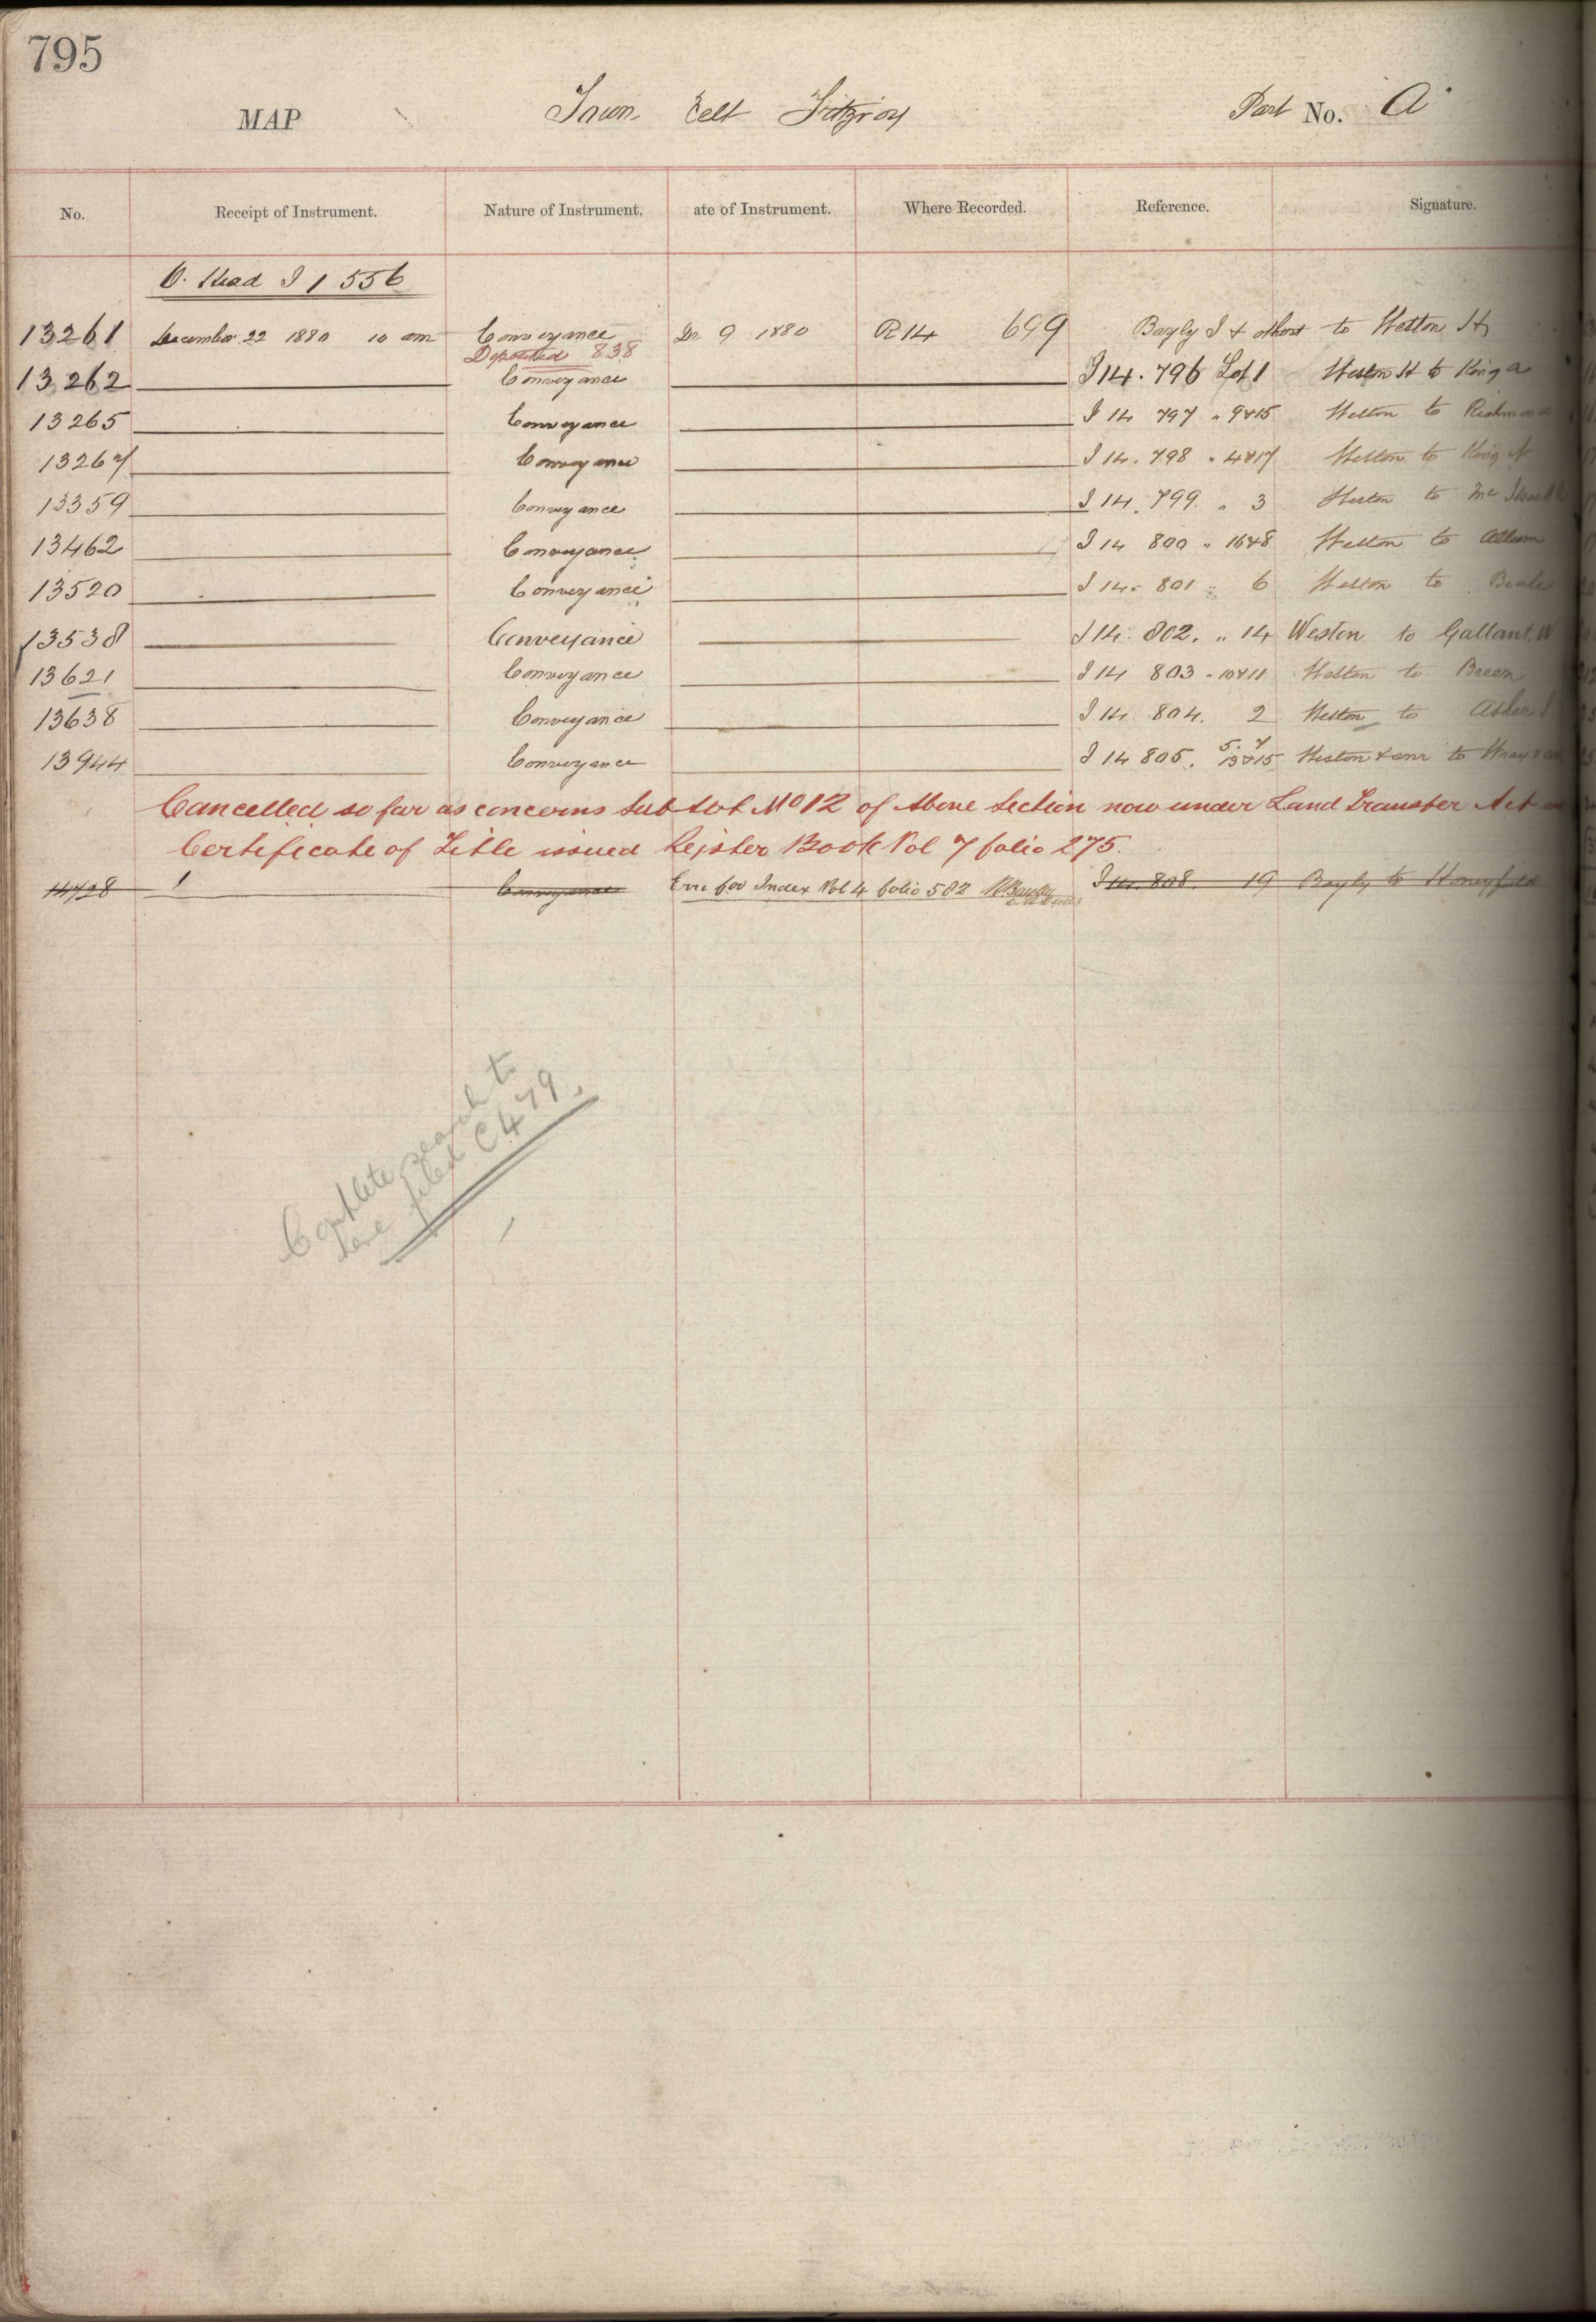 795
MAP Town Belt Fitzroy Part No. A
No. Receipt of Instrument. Nature of Instrument. ate of Instrument. Where Recorded. Reference. Signature.
I 1 556
13261 December 22 1880 10 am Conveyance De 9 1880 R14 699 Bayly I & to Weston H
Deposited 838
13262 Conveyance I 14. 796 Lot 1 Weston H to King a
13265 Conveyance I 14 797 " 9&15 Weston to
13267 Conveyance I 14. 798 " 4&17 Weston to King
13359 Conveyance I 14. 799. " 3 Weston to Mc
13462 Conveyance I 14 800 " 16&8 Weston to
13520 Conveyance I 14. 801 " 6 Weston to Beale
13538 Conveyance I 14. 802. " 14 Weston to Gallant. W
13621 Conveyance I 14 803 " 10&11 Weston to Breen
13638 Conveyance I 14 804. 2 Weston to
13944 Conveyance I 14 805. 5. 7 13&15 Weston & anr to Wray &
Cancelled so far as concerns Sub Lot No 12 of above Section now under Land Transfer Act
Certificate of Title issued Register Book Vol 7 folio 275.
14728 Conveyance Error for Index Vol 4 folio 582 I 14. 808. 19 Bayly to Honeyfield
Complete search to
here filed C 479.